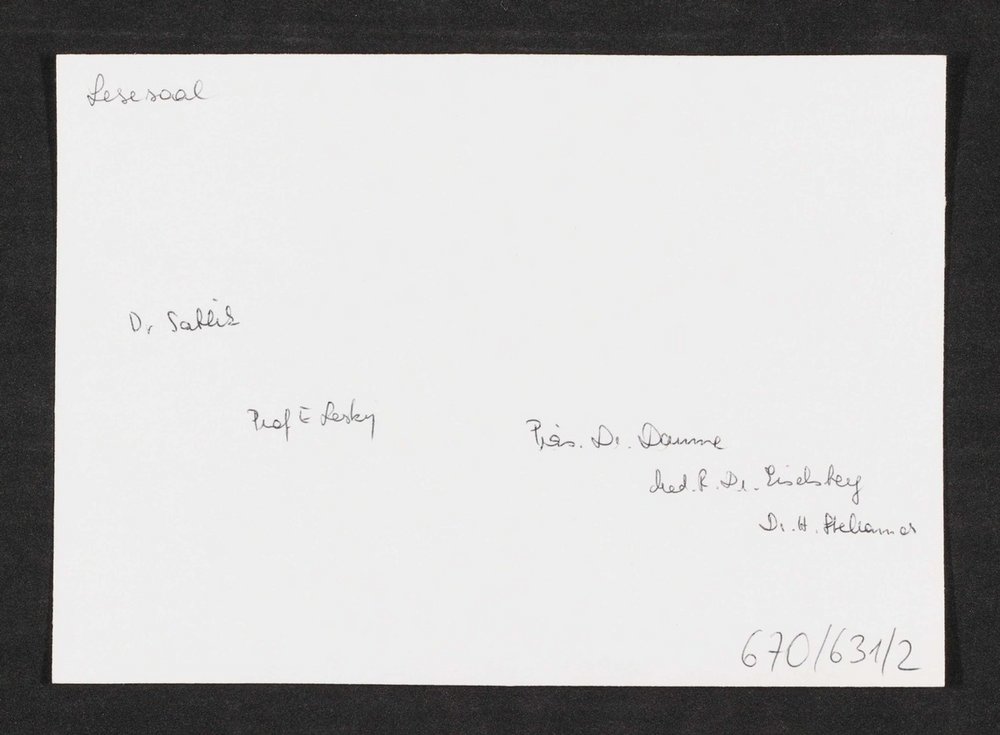 Lesesaal
Dr Sablik
Prof E Lesky
Präs. Dr. Daume
Med. R. Dr. Eiselsberg
Dr. H.
670/631/2